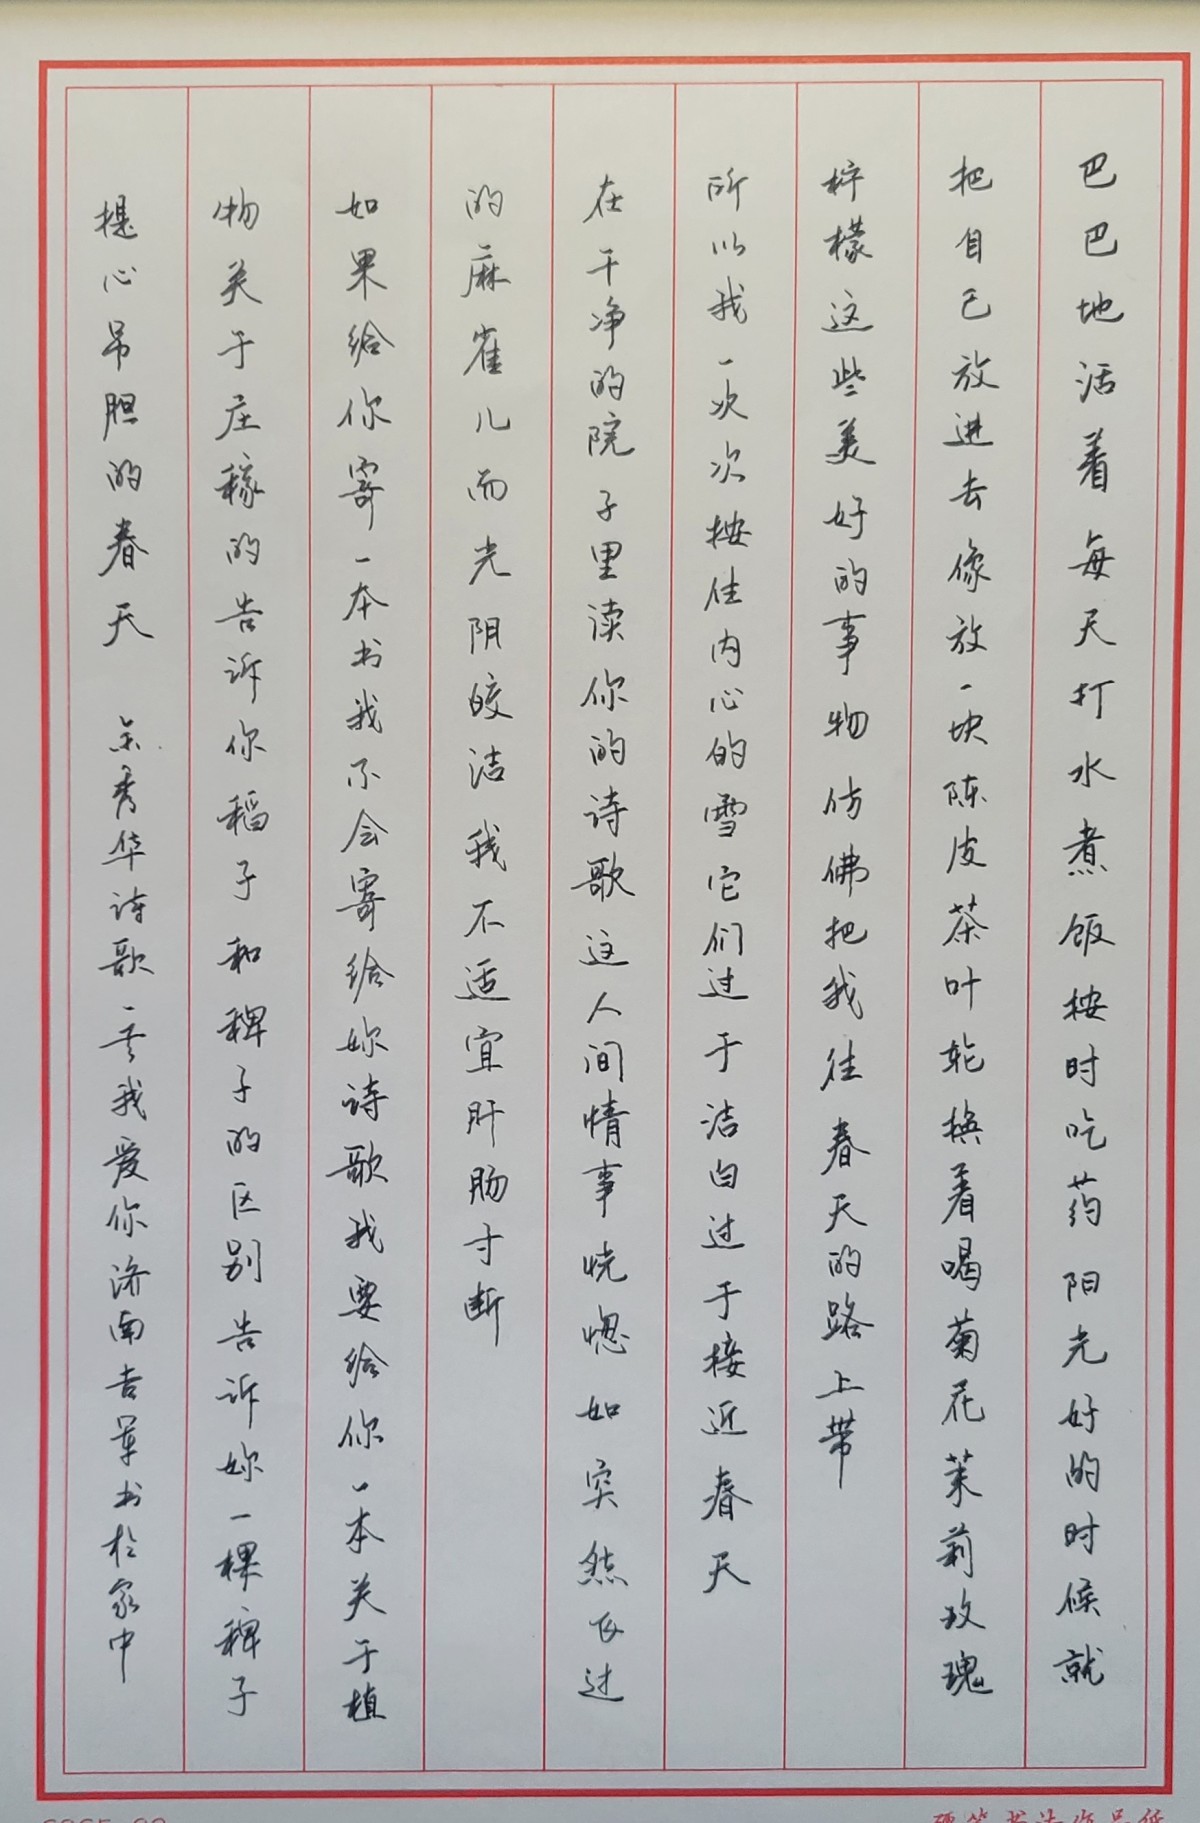 巴巴地活着每天打水煮饭按时吃药阳光好的时候就
把自己放进去像放一块陈皮茶叶轮换着喝菊花茉莉玫瑰
柠檬这些美好的事物仿佛把我往春天的路上带
所以我一次次按住内心的雪它们过于洁白过于接近春天
在干净的院子里读你的诗歌这人间情事恍惚如突然飞过
的麻雀儿而光阴皎洁我不适宜肝肠寸断
如果给你寄一本书我不会寄给妳诗歌我要给你一本关于植
物关于庄稼的告诉你稻子和稗子的区别告诉妳一棵稗子
提心吊胆的春天 余秀华诗歌一首我爱你济南吉军书於家中
硬笔书法作品纸